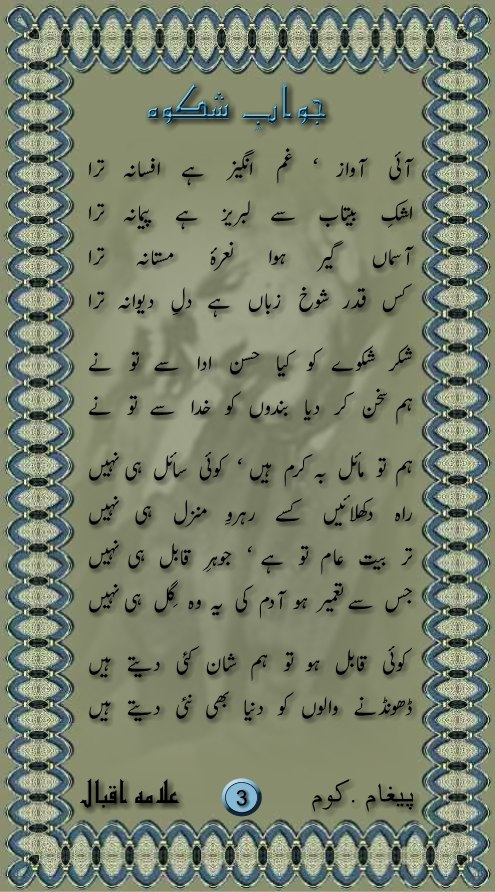 جوابِ شکوہ
آئی آواز ، غم انگیز ہے افسانہ ترا
اشکِ بیتاب سے لبریز ہے پیمانہ ترا
آسماں گیر ہوا نعرۂ مستانہ ترا
کس قدر شوخ زباں ہے دلِ دیوانہ ترا
شکر شکوے کو کیا حسنِ ادا سے تو نے
ہم سخن کر دیا بندوں کو خدا سے تو نے
ہم تو مائل بہ کرم ہیں ، کوئی سائل ہی نہیں
راہ دکھلائیں کسے رہروِ منزل ہی نہیں
تر بیت عام تو ہے ، جوہرِ قابل ہی نہیں
جس سے تعمیر ہو آدم کی یہ وہ گِل ہی نہیں
کوئی قابل ہو تو ہم شان کئی دیتے ہیں
ڈھونڈنے والوں کو دنیا بھی نئی دیتے ہیں
پیغام .کوم 3 علامہ اقبال